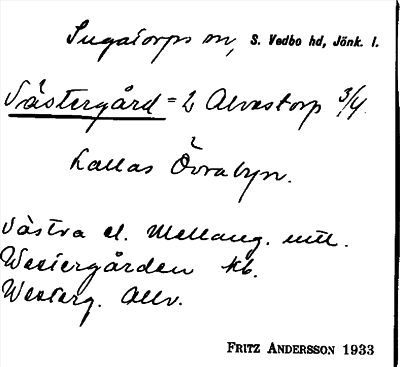 Ingatorps sn, S. Vedbo hd, Jönk. l.
Västergård = 2 Alvastorp 3/4.
kallas Övraby.
Västra el. Mellang. utt.
Westergården kb.
Westerg. Allv.
FRITZ ANDERSSON 1933